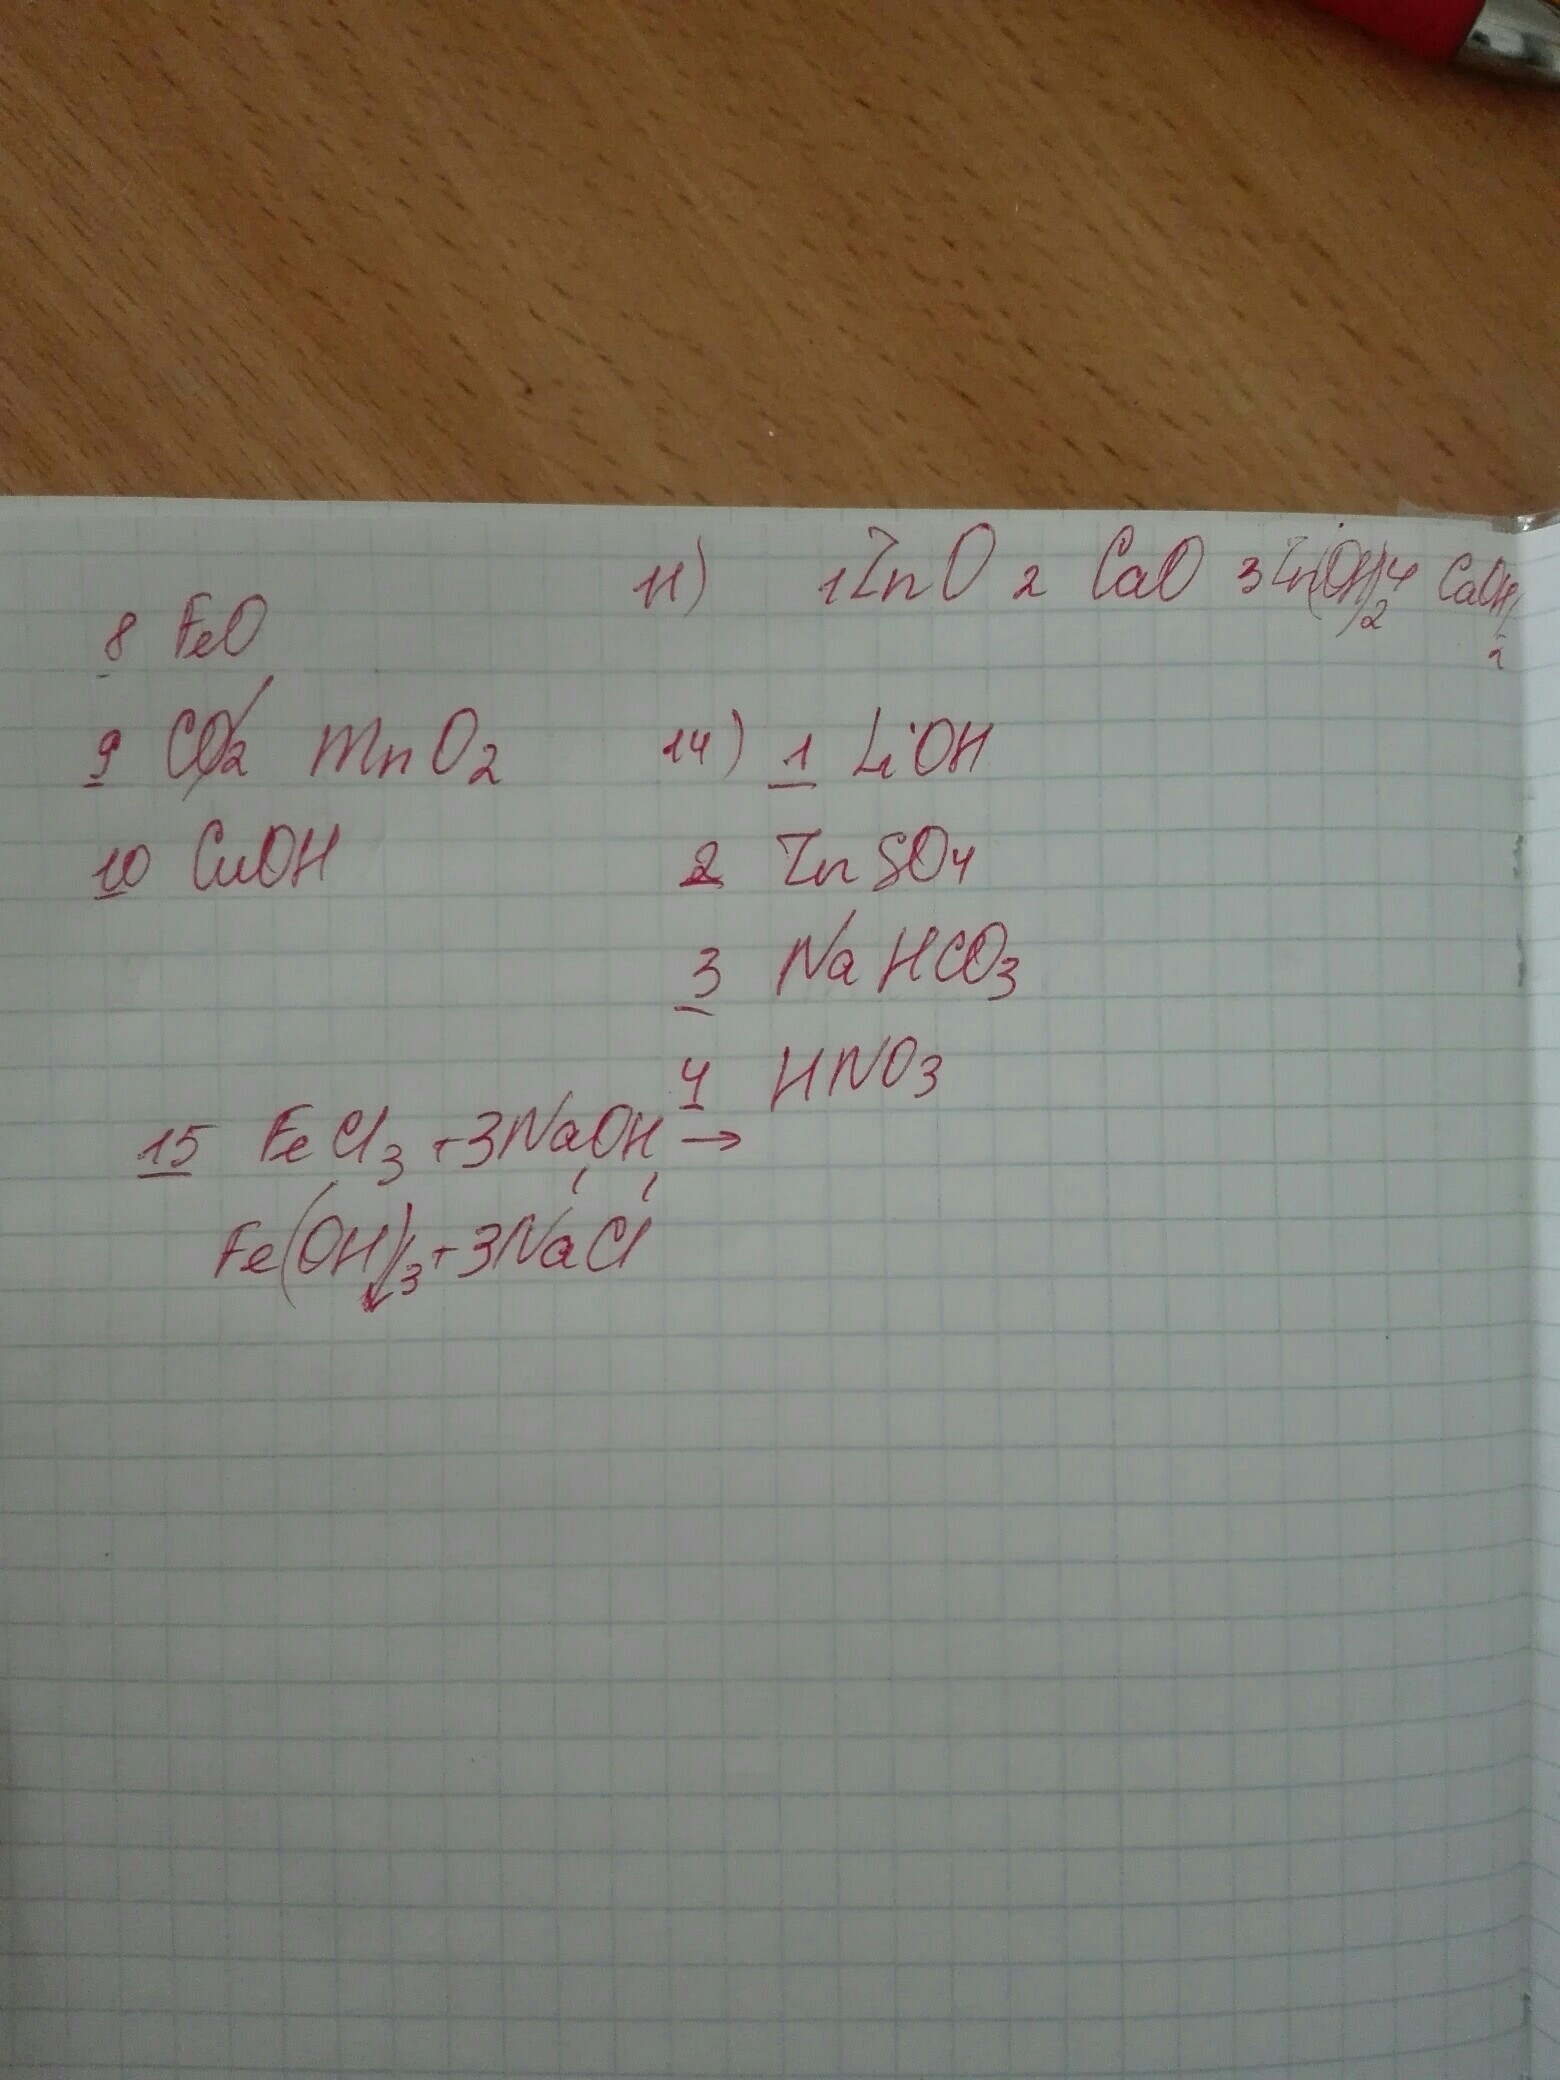 11) 1 ZnO 2 CaO 3 Zn(OH)2 4 Ca(OH)2
8 FeO
9 CO2 MnO2
14) 1 LiOH
10 CuOH
2 ZnSO4
3 NaHCO3
4 HNO3
15 FeCl3 + 3NaOH →
Fe(OH)3↓ + 3NaCl